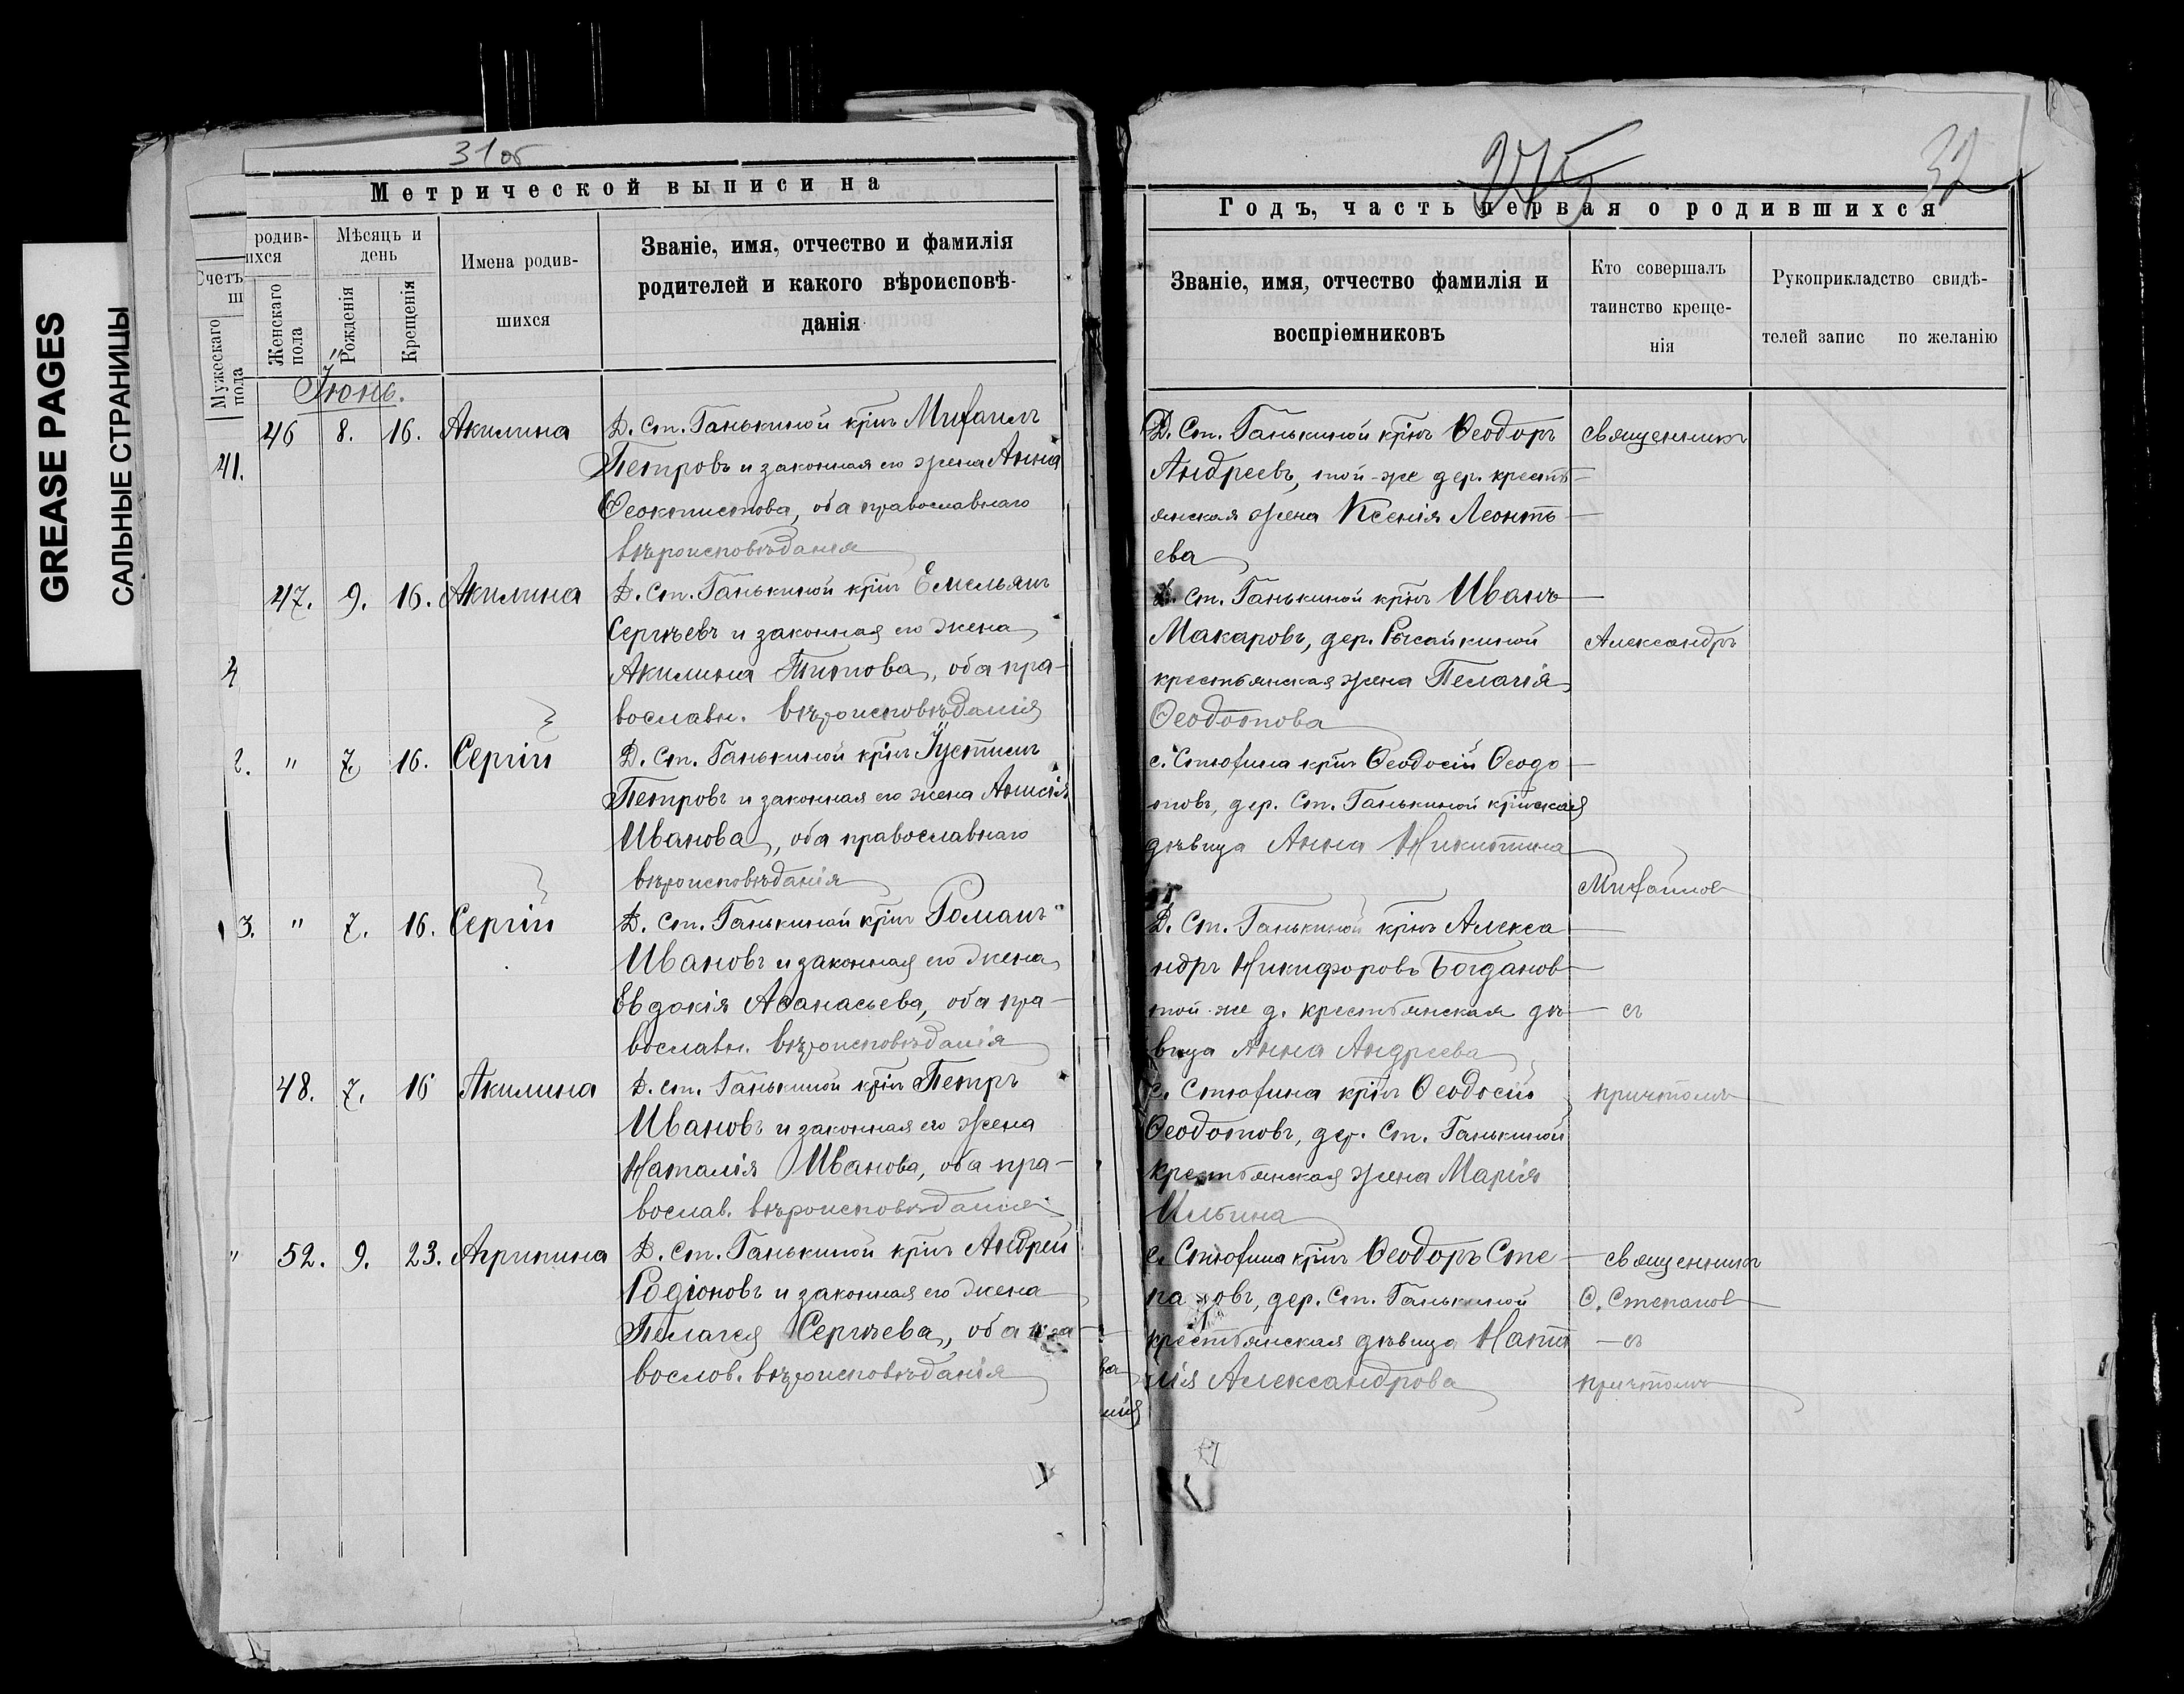 GREASE PAGES
САЛЬНЫЕ СТРАНИЦЫ
31 об
Метрической выписи на
Счетъ родив-
шихся
Мужескаго пола
Женскаго пола
Мѣсяцъ и день
Рожденія
Крещенія
Имена родив-
шихся
Званіе, имя, отчество и фамилія
родителей и какого вѣроисповѣ-
данія
Іюнь.
41.
46 8. 16. Акилина
Д. Ст. Ганькиной крнъ Михаилъ
Петровъ и законная его жена Анна
Ѳеоктистова, оба православнаго
вѣроисповѣданія
47. 9. 16. Акилина
Д. Ст. Ганькиной крнъ Емельянъ
Сергѣевъ и законная его жена
Акилина Титова, оба пра-
вославн. вѣроисповѣданія
2. " 7. 16. Сергій
Д. Ст. Ганькиной крнъ Іустинъ
Петровъ и законная его жена Анисія
Иванова, оба православнаго
вѣроисповѣданія
3. " 7. 16. Сергій
Д. Ст. Ганькиной крнъ Романъ
Ивановъ и законная его жена
Евдокія Аѳанасьева, оба пра-
вославн. вѣроисповѣданія
48. 7. 16 Акилина
Д. ст. Ганькиной крнъ Петръ
Ивановъ и законная его жена
Наталія Иванова, оба пра-
вослав. вѣроисповѣданія
" 52. 9. 23. Агрипина
Д. Ст. Ганькиной крнъ Андрей
Родіоновъ и законная его жена
Пелагея Сергѣева, оба пра-
вослов. вѣроисповѣданія
32
Годъ, часть первая о родившихся
Званіе, имя, отчество фамилія и
воспріемниковъ
Кто совершалъ
таинство креще-
нія
Рукоприкладство свидѣ-
телей запис по желанію
Д. Ст. Ганькиной крнъ Ѳеодоръ
Андреевъ, той-же дер. кресть-
янская жена Ксенія Леонть-
ева
Д. ст. Ганькиной крнъ Иванъ
Макаровъ, дер. Рысайкиной
крестьянская жена Пелагія
Ѳеодотова
с. Стюхина крнъ Ѳеодосій Ѳеодо-
товъ, дер. Ст. Ганькиной крнская
дѣвица Анна Никитина
Д. Ст. Ганькиной крнъ Алекса
ндръ Никифоровъ Богданов-
той-же д. крестьянская дѣ-
вица Анна Андреева
с. Стюхина крнъ Ѳеодосій
Ѳеодотовъ, дер. Ст. Ганькиной
крестьянская жена Марія
Ильина
с. Стюхина крнъ Ѳеодоръ Сте-
пановъ, дер. Ст. Ганькиной
крестьянская дѣвица Ната
лія Александрова
священникъ
Александръ
Михайлов
— съ
причтомъ
священникъ
Ѳ. Степанов
— съ
причтомъ